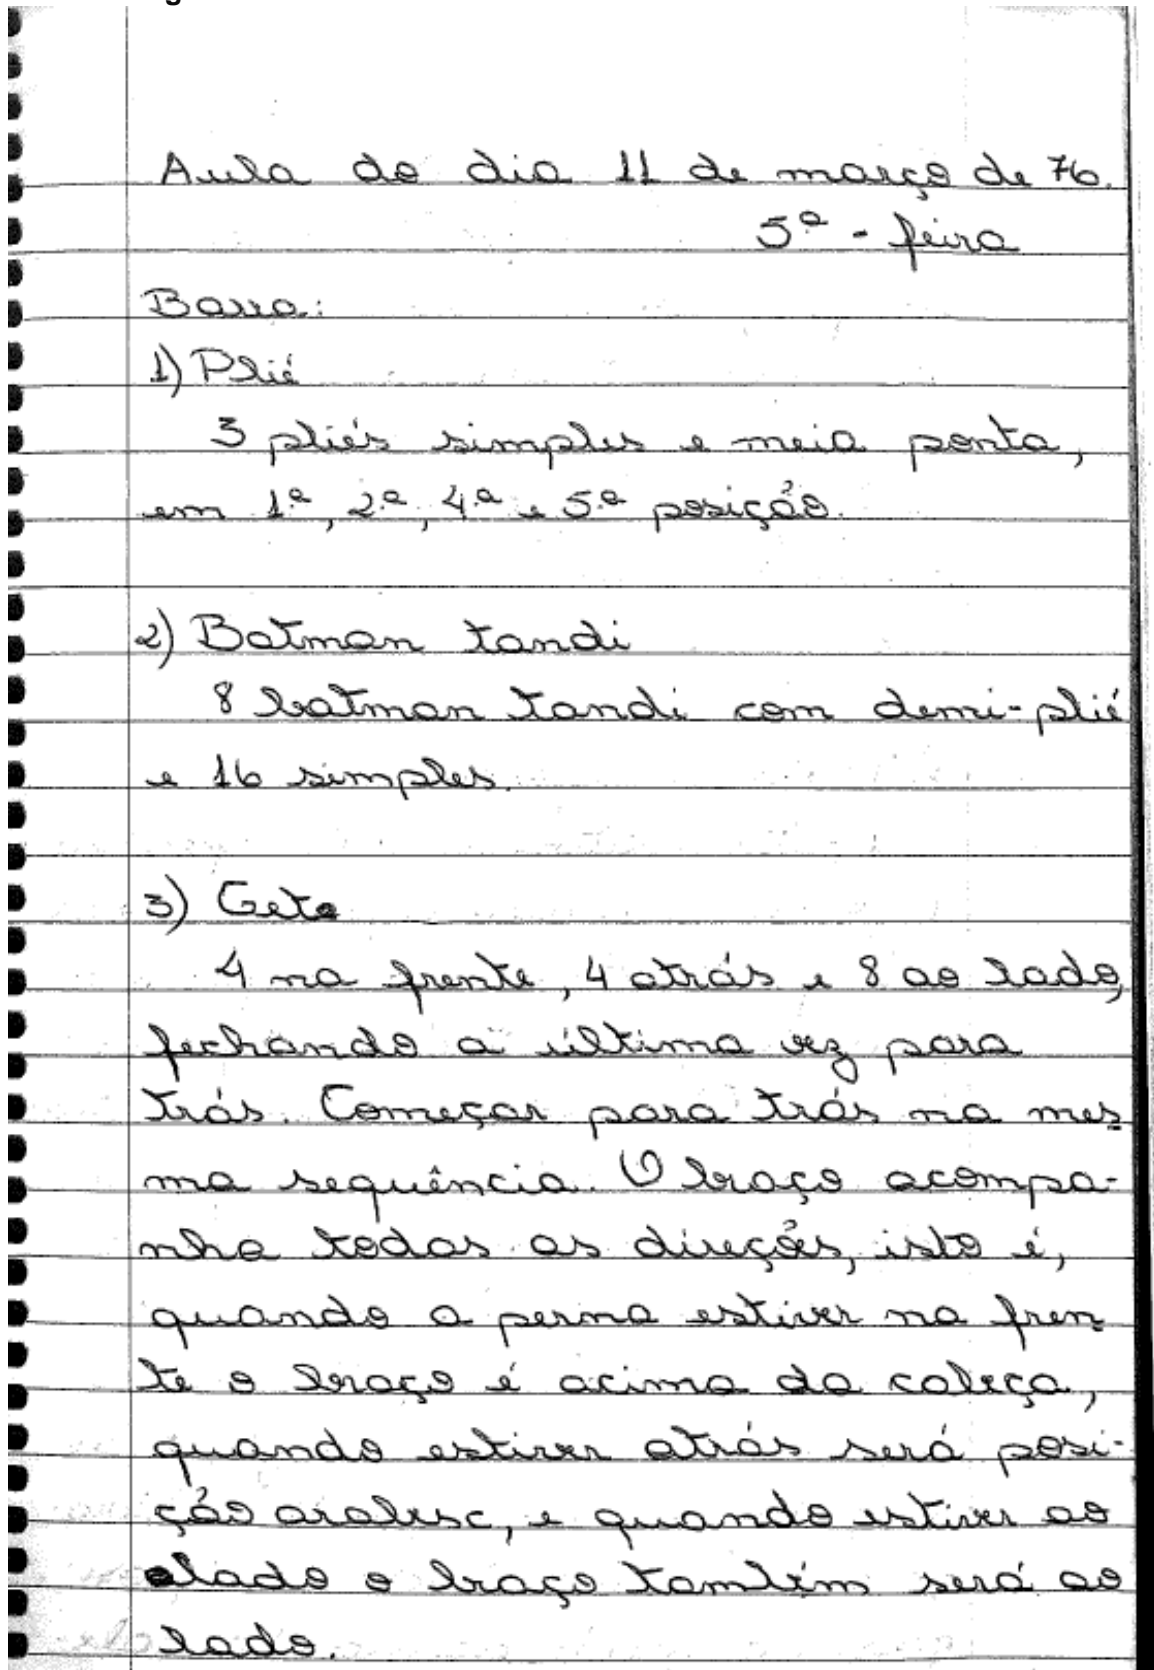 Aula do dia 11 de março de 76.
5ª - feira
Barra:
1) Plié
3 pliés simples e meia ponta,
em 1.ª, 2.ª, 4.ª e 5.ª posição.
2) Batman tandi
8 batman tandi com demi-plié
e 16 simples.
3) Geto
4 na frente, 4 atrás e 8 ao lado,
fechando a última vez para
trás. Começar para trás na mes-
ma sequência. O braço acompa-
nha todas as direções, isto é,
quando a perna estiver na fren-
te o braço é acima da cabeça,
quando estiver atrás será posi-
ção arabesc, e quando estiver ao
lado o braço também será ao
lado.